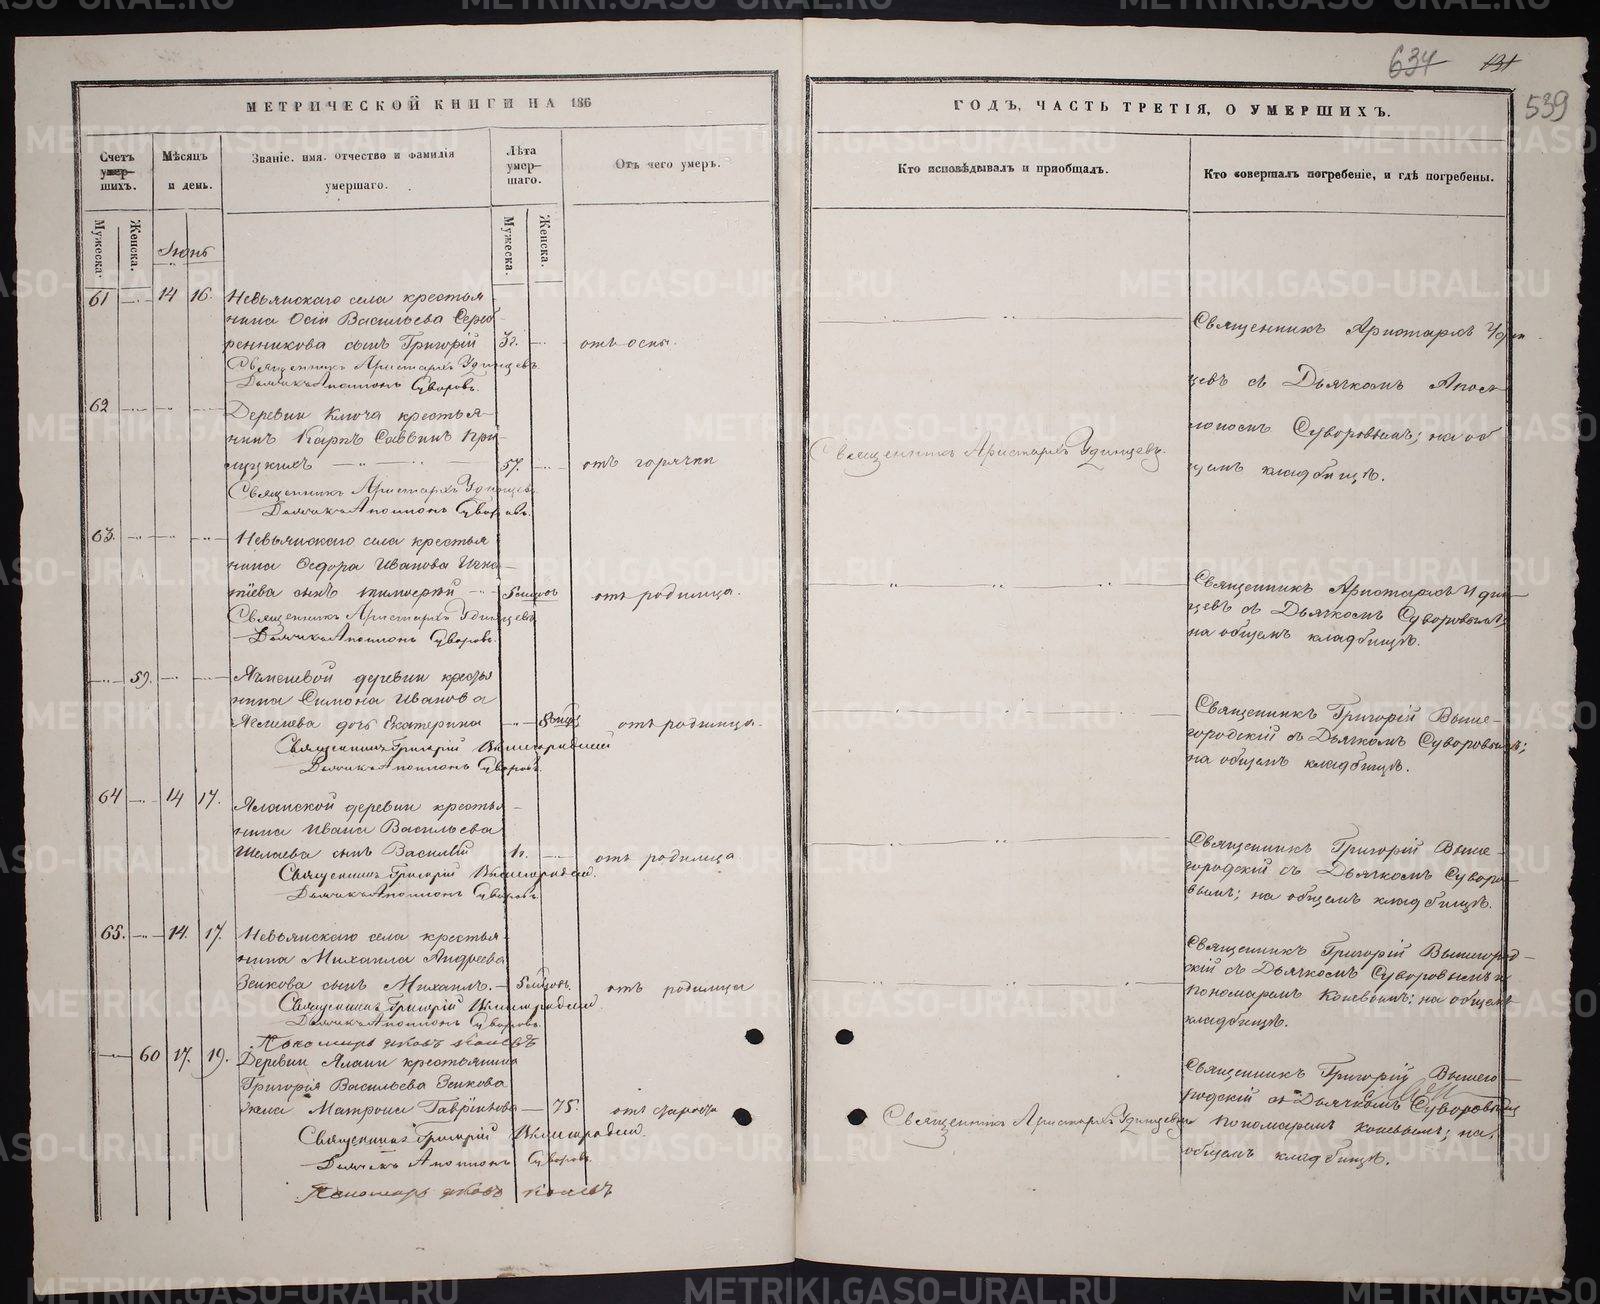 634 131
539
МЕТРИЧЕСКОЙ КНИГИ НА 186
ГОДЪ, ЧАСТЬ ТРЕТІЯ, О УМЕРШИХЪ.
Счетъ умер-шихъ.
Мѣсяцъ и день.
Званіе, имя, отчество и фамилія умершаго.
Лѣта умер-шаго.
Отъ чего умеръ.
Кто исповѣдывалъ и пріобщалъ.
Кто совершалъ погребеніе, и гдѣ погребены.
Мужеска.
Женска.
Мужеска.
Женска.
Іюнь
61 14 16. Невьянскаго села крестья
нина Осіи Васильева Сереб-
ренникова сынъ Григорій 3г. отъ оспы.
Священникъ Аристархъ Удинцевъ
Дьячекъ Аполлонъ Суворовъ.
Священникъ Аристархъ Удин-
цевъ съ Дьячкомъ Апол-
лономъ Суворовымъ; на об
щемъ кладбищѣ.
62 Деревни Ключа крестья-
нинъ Карпъ Саввинъ При-
57. отъ горячки
Священникъ Аристархъ Удинцевъ
Дьячекъ Аполлонъ Суворовъ.
Священникъ Аристархъ Удинцевъ.
63. Невьянскаго села крестья
нина Ѳедора Иванова Игна-
тіева сынъ Тимоѳей 5 мцовъ отъ родимца.
Священникъ Аристархъ Удинцевъ
Дьячекъ Аполлонъ Суворовъ.
Священникъ Аристархъ Удин-
цевъ съ Дьячкомъ Суворовымъ;
на общемъ кладбищѣ.
59. деревни крестья
нина Симона Иванова
дочь Екатерина отъ родимца.
Священникъ Григорій Вышегородскій
Дьячекъ Аполлонъ Суворовъ.
Священникъ Григорій Выше-
городскій съ Дьячкомъ Суворовымъ;
на общемъ кладбищѣ.
64 14 17. Яланской деревни крестья-
нина Ивана Васильева
Шелаева сынъ Василій 1г. отъ родимца
Священникъ Григорій Вышегородскій.
Дьячекъ Аполлонъ Суворовъ.
Священникъ Григорій Выше-
городскій съ Дьячкомъ Суворо-
вымъ; на общемъ кладбищѣ.
65. 14. 17. Невьянскаго села крестья-
нина Михаила Андреева
Зенкова сынъ Михаилъ. 5 мцовъ. отъ родимца
Священникъ Григорій Вышегородскій.
Дьячекъ Аполлонъ Суворовъ.
Пономарь Яковъ Коневъ
Священникъ Григорій Вышегород-
скій съ Дьячкомъ Суворовымъ и
пономаремъ Коневымъ; на общемъ
кладбищѣ.
60 17. 19. Деревни Ялани крестьянина
Григорія Васильева Зенкова
жена Матрона Гаврілова 75. отъ старости
Священникъ Григорій Вышегородскій.
Дьячекъ Аполлонъ Суворовъ.
Пономарь Яковъ Коневъ
Священникъ Аристархъ Удинцевъ
Священникъ Григорій Вышего-
родскій съ Дьячкомъ Суворовымъ
пономаремъ Коневымъ; на
общемъ кладбищѣ.
METRIKI.GASO-URAL.RU